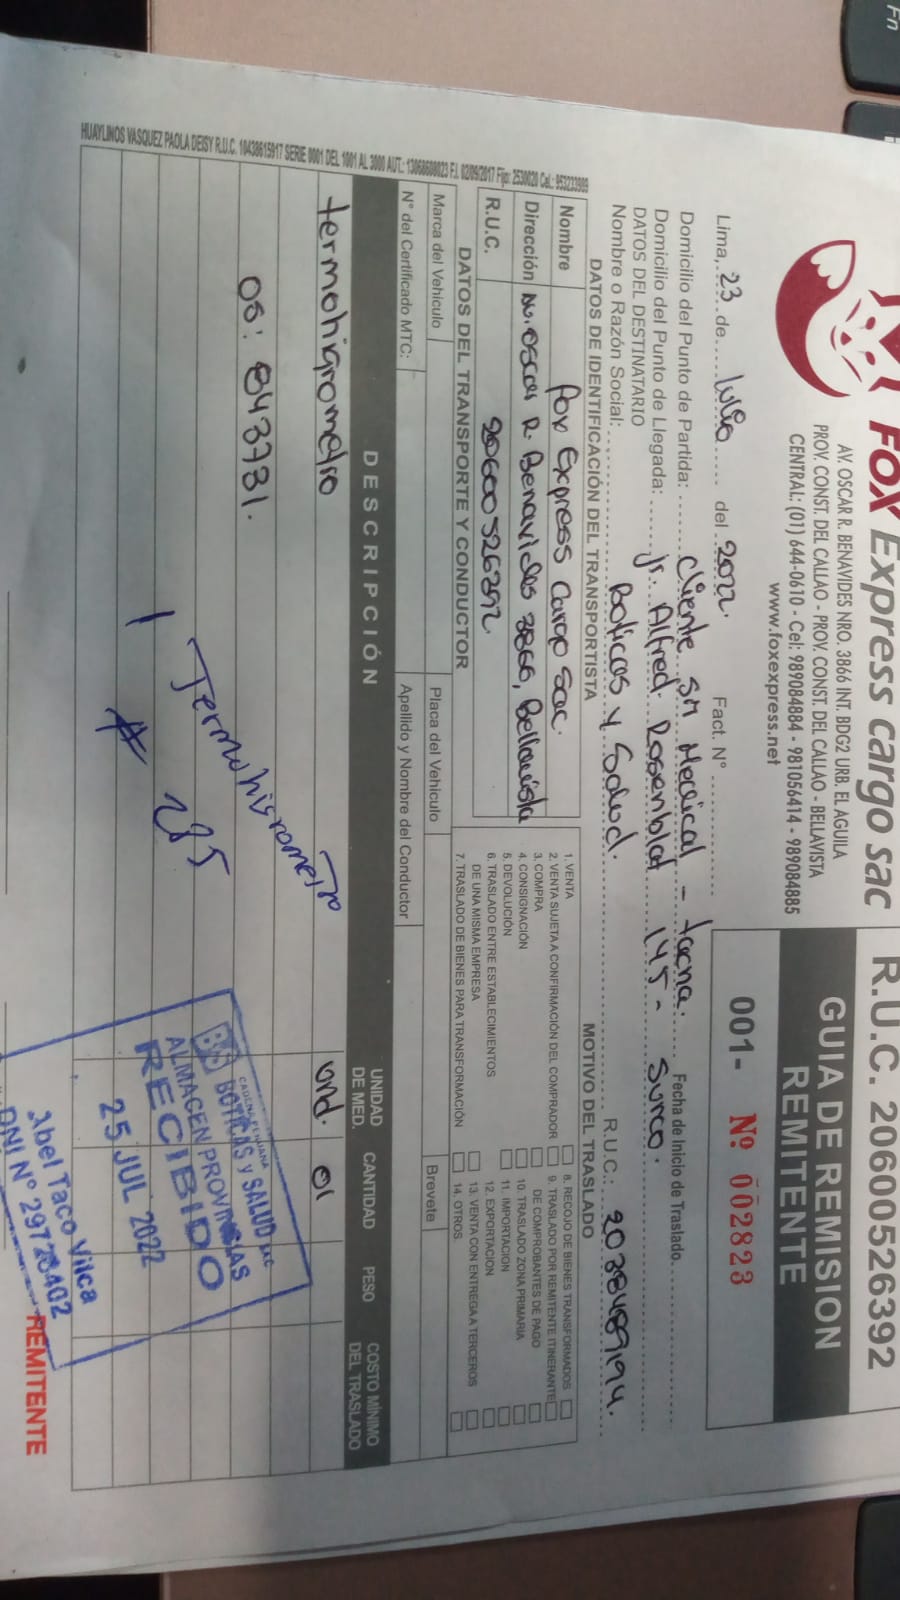 FOX Express cargo sac
AV. OSCAR R. BENAVIDES NRO. 3866 INT. BDG2 URB. EL AGUILA
PROV. CONST. DEL CALLAO - PROV. CONST. DEL CALLAO - BELLAVISTA
CENTRAL: (01) 644-0610 - Cel: 989084884 - 981056414 - 989084885
www.foxexpress.net
R.U.C. 20600526392
GUIA DE REMISION
REMITENTE
001- Nº 002823
Lima, 23 de Julio del 2022. Fact. N°
Domicilio del Punto de Partida: Cliente SM Medical - tacna. Fecha de Inicio de Traslado
Domicilio del Punto de Llegada: Jr. Alfred. Rosenblat 145 - Surco.
DATOS DEL DESTINATARIO
Nombre o Razón Social: Boticas y Salud. R.U.C.: 20384891194.
DATOS DE IDENTIFICACIÓN DEL TRANSPORTISTA
Nombre Fox Express Cargo Sac.
Dirección Av. Oscar R. Benavides 3866, Bellavista
R.U.C. 20600526392
MOTIVO DEL TRASLADO
1. VENTA
2. VENTA SUJETA A CONFIRMACIÓN DEL COMPRADOR
3. COMPRA
4. CONSIGNACIÓN
5. DEVOLUCIÓN
6. TRASLADO ENTRE ESTABLECIMIENTOS
DE UNA MISMA EMPRESA
7. TRASLADO DE BIENES PARA TRANSFORMACIÓN
8. RECOJO DE BIENES TRANSFORMADOS
9. TRASLADO POR REMITENTE ITINERANTE
DE COMPROBANTES DE PAGO
10. TRASLADO ZONA PRIMARIA
11. IMPORTACION
12. EXPORTACION
13. VENTA CON ENTREGA A TERCEROS
14. OTROS
DATOS DEL TRANSPORTE Y CONDUCTOR
Marca del Vehiculo Placa del Vehiculo Brevete
N° del Certificado MTC: Apellido y Nombre del Conductor
DESCRIPCIÓN UNIDAD DE MED. CANTIDAD PESO COSTO MÍNIMO DEL TRASLADO
termohigrometro und. 01
OS: 843731.
1 Termohigrometro
285
CADENA PERUANA
BYS BOTICAS y SALUD SAC
ALMACEN PROVINCIAS
RECIBIDO
25 JUL 2022
Abel Taco Vilca
DNI N° 29728402
REMITENTE
HUAYLINOS VASQUEZ PAOLA DEISY R.U.C. 10438615917 SERIE 0001 DEL 1001 AL 3000 AUT.: 13068608023 F.I. 02/09/2017 Fijo: 2530020 Cel.: 953233989
Fn